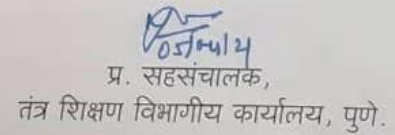 प्र. सहसंचालक,
तंत्र शिक्षण विभागीय कार्यालय, पुणे.